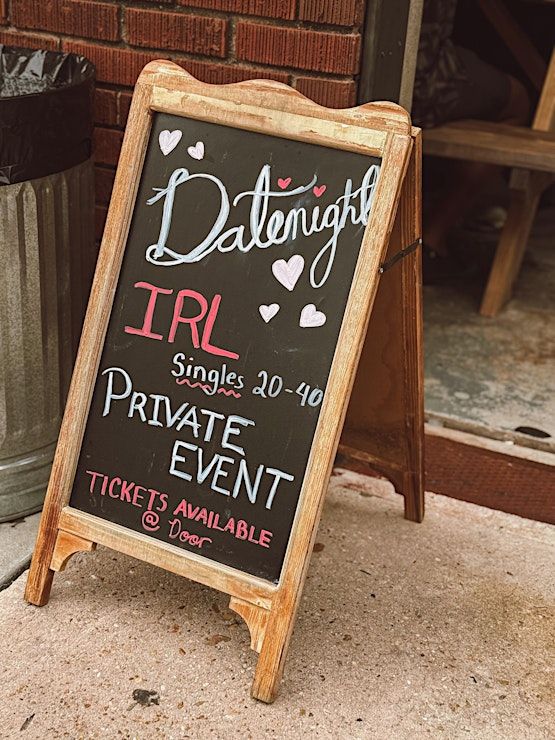 Datenight
IRL
Singles 20-40
PRIVATE
EVENT
TICKETS AVAILABLE
@ Door